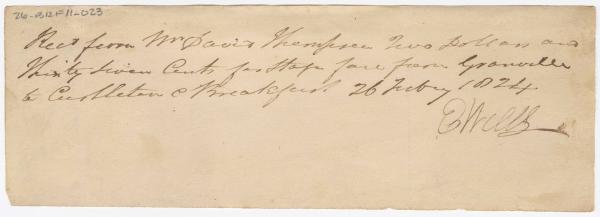 26-B12F11-023
Rect from Mr David Thompson Two Dollars and
Thirty Seven Cents for Stage fare from Granville
to Castleton & Breakfast 26 Febuy 1824
Wells